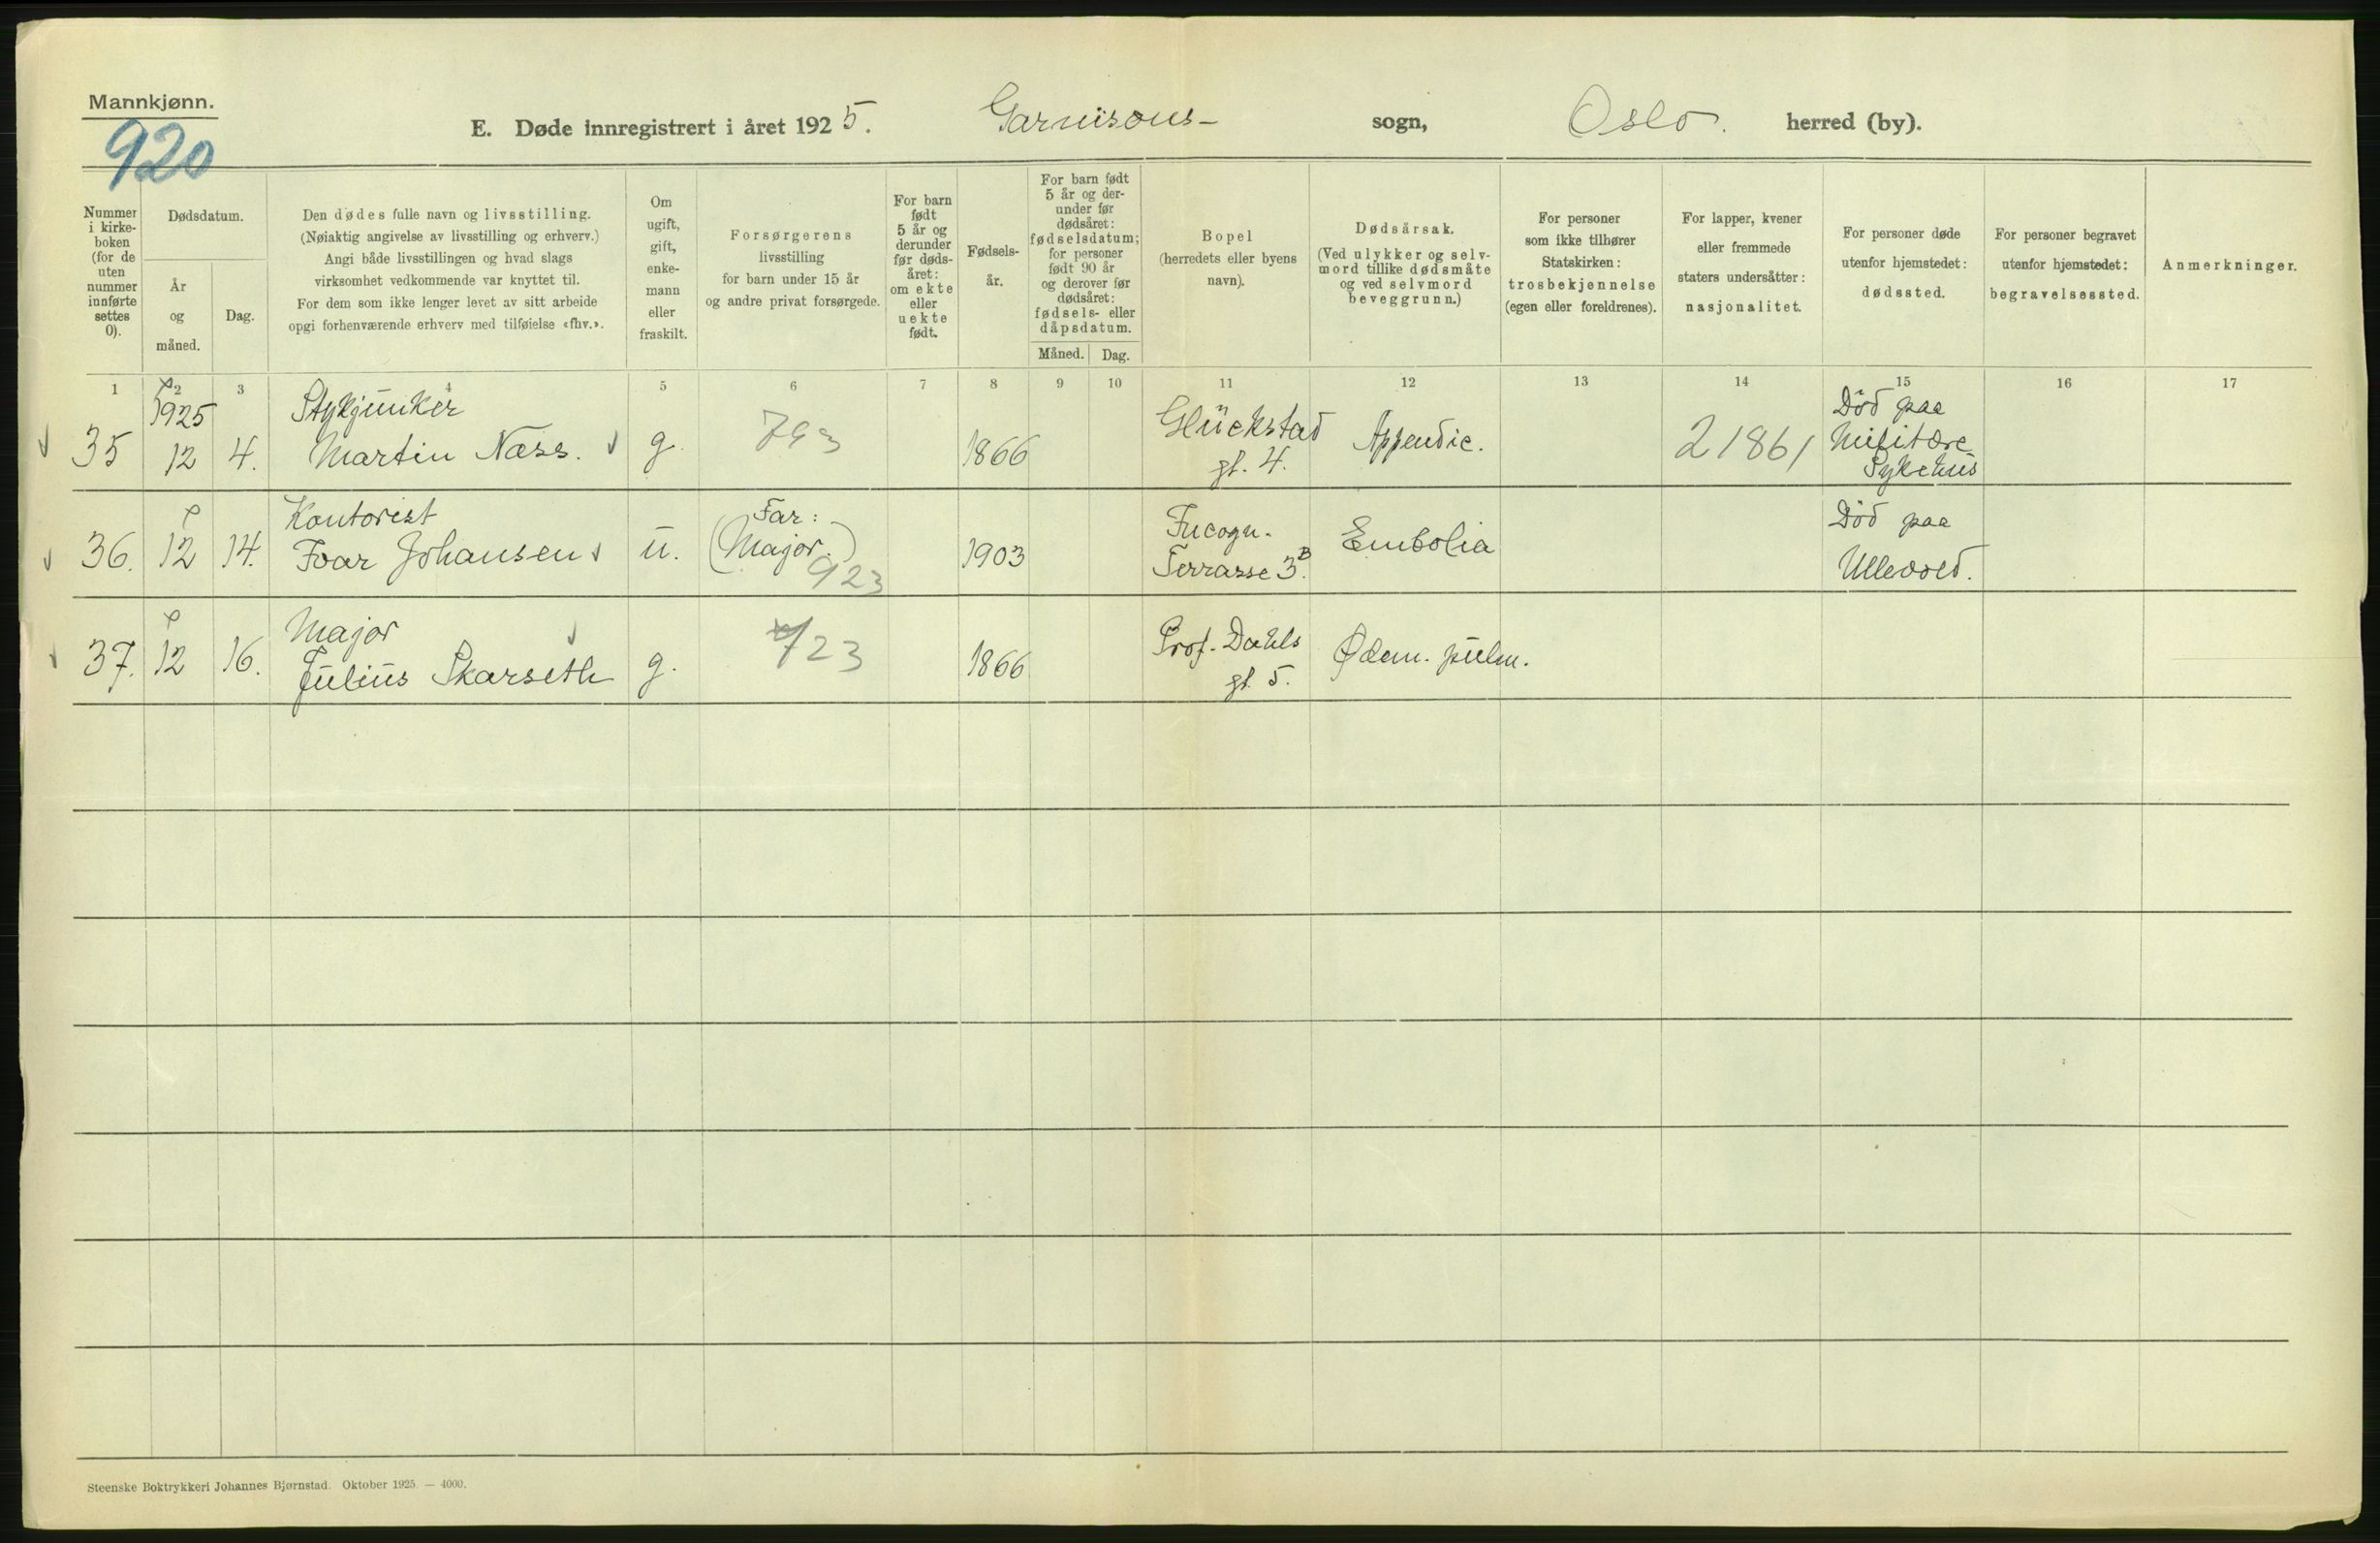 Mannkjønn.
920
E. Døde innregistrert i året 1925. Garnisons- sogn, Oslo. herred (by).
Nummer i kirke-boken (for de uten nummer innførte settes 0).
Dødsdatum.
År og måned.
Dag.
Den dødes fulle navn og livsstilling.
(Nøiaktig angivelse av livsstilling og erhverv.)
Angi både livsstillingen og hvad slags
virksomhet vedkommende var knyttet til.
For dem som ikke lenger levet av sitt arbeide
opgi forhenværende erhverv med tilføielse «fhv.».
Om ugift, gift, enke-mann eller fraskilt.
Forsørgerens
livsstilling
for barn under 15 år
og andre privat forsørgede.
For barn født 5 år og derunder før døds-året: om ekte eller uekte født.
Fødsels-år.
For barn født 5 år og der-under før dødsåret: fødselsdatum; for personer født 90 år og derover før dødsåret: fødsels- eller dåpsdatum.
Måned. Dag.
Bopel
(herredets eller byens
navn).
Dødsårsak.
(Ved ulykker og selv-
mord tillike dødsmåte
og ved selvmord
beveggrunn.)
For personer
som ikke tilhører
Statskirken:
trosbekjennelse
(egen eller foreldrenes).
For lapper, kvener
eller fremmede
staters undersåtter:
nasjonalitet.
For personer døde
utenfor hjemstedet:
dødssted.
For personer begravet
utenfor hjemstedet:
begravelsessted.
Anmerkninger.
1 2 3 4 5 6 7 8 9 10 11 12 13 14 15 16 17
35 1925 12 4. Stykjunker Martin Næss. g. 793 1866 Glückstad gt. 4. Appendic. 21861 Död paa Militære Sykehus
36. 12 14. Kontorist Ivar Johansen u. Far: (Major.) 923 1903 Incogn. Terrasse 3B. Embolia Död paa Ullevold.
37. 12 16. Major Julius Skarseth g. 723 1866 Prof. Dahls gt. 5. Ødem. pulm.
Steenske Boktrykkeri Johannes Bjørnstad. Oktober 1925. — 4000.